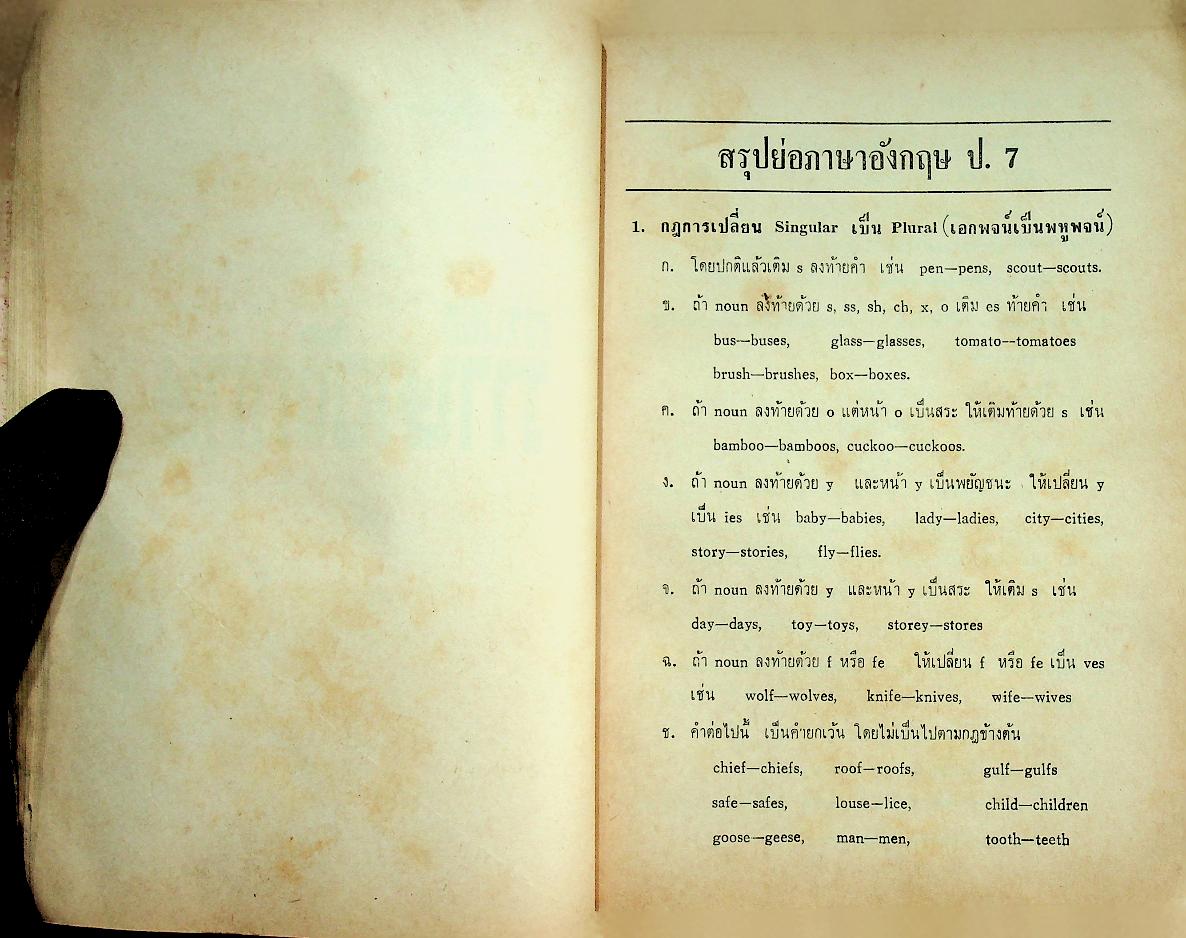 สรุปย่อภาษาอังกฤษ ป. 7
1. กฎการเปลี่ยน Singular เป็น Plural (เอกพจน์เป็นพหูพจน์)
ก. โดยปกติแล้วเติม s ลงท้ายคำ เช่น pen—pens, scout—scouts.
ข. ถ้า noun ลงท้ายด้วย s, ss, sh, ch, x, o เติม es ท้ายคำ เช่น
bus—buses, glass—glasses, tomato--tomatoes
brush—brushes, box—boxes.
ค. ถ้า noun ลงท้ายด้วย o แต่หน้า o เป็นสระ ให้เติมท้ายด้วย s เช่น
bamboo—bamboos, cuckoo—cuckoos.
ง. ถ้า noun ลงท้ายด้วย y และหน้า y เป็นพยัญชนะ ให้เปลี่ยน y
เป็น ies เช่น baby—babies, lady—ladies, city—cities,
story—stories, fly—flies.
จ. ถ้า noun ลงท้ายด้วย y และหน้า y เป็นสระ ให้เติม s เช่น
day—days, toy—toys, storey—stores
ฉ. ถ้า noun ลงท้ายด้วย f หรือ fe ให้เปลี่ยน f หรือ fe เป็น ves
เช่น wolf—wolves, knife—knives, wife—wives
ช. คำต่อไปนี้ เป็นคำยกเว้น โดยไม่เป็นไปตามกฎข้างต้น
chief—chiefs, roof—roofs, gulf—gulfs
safe—safes, louse—lice, child—children
goose—geese, man—men, tooth—teeth